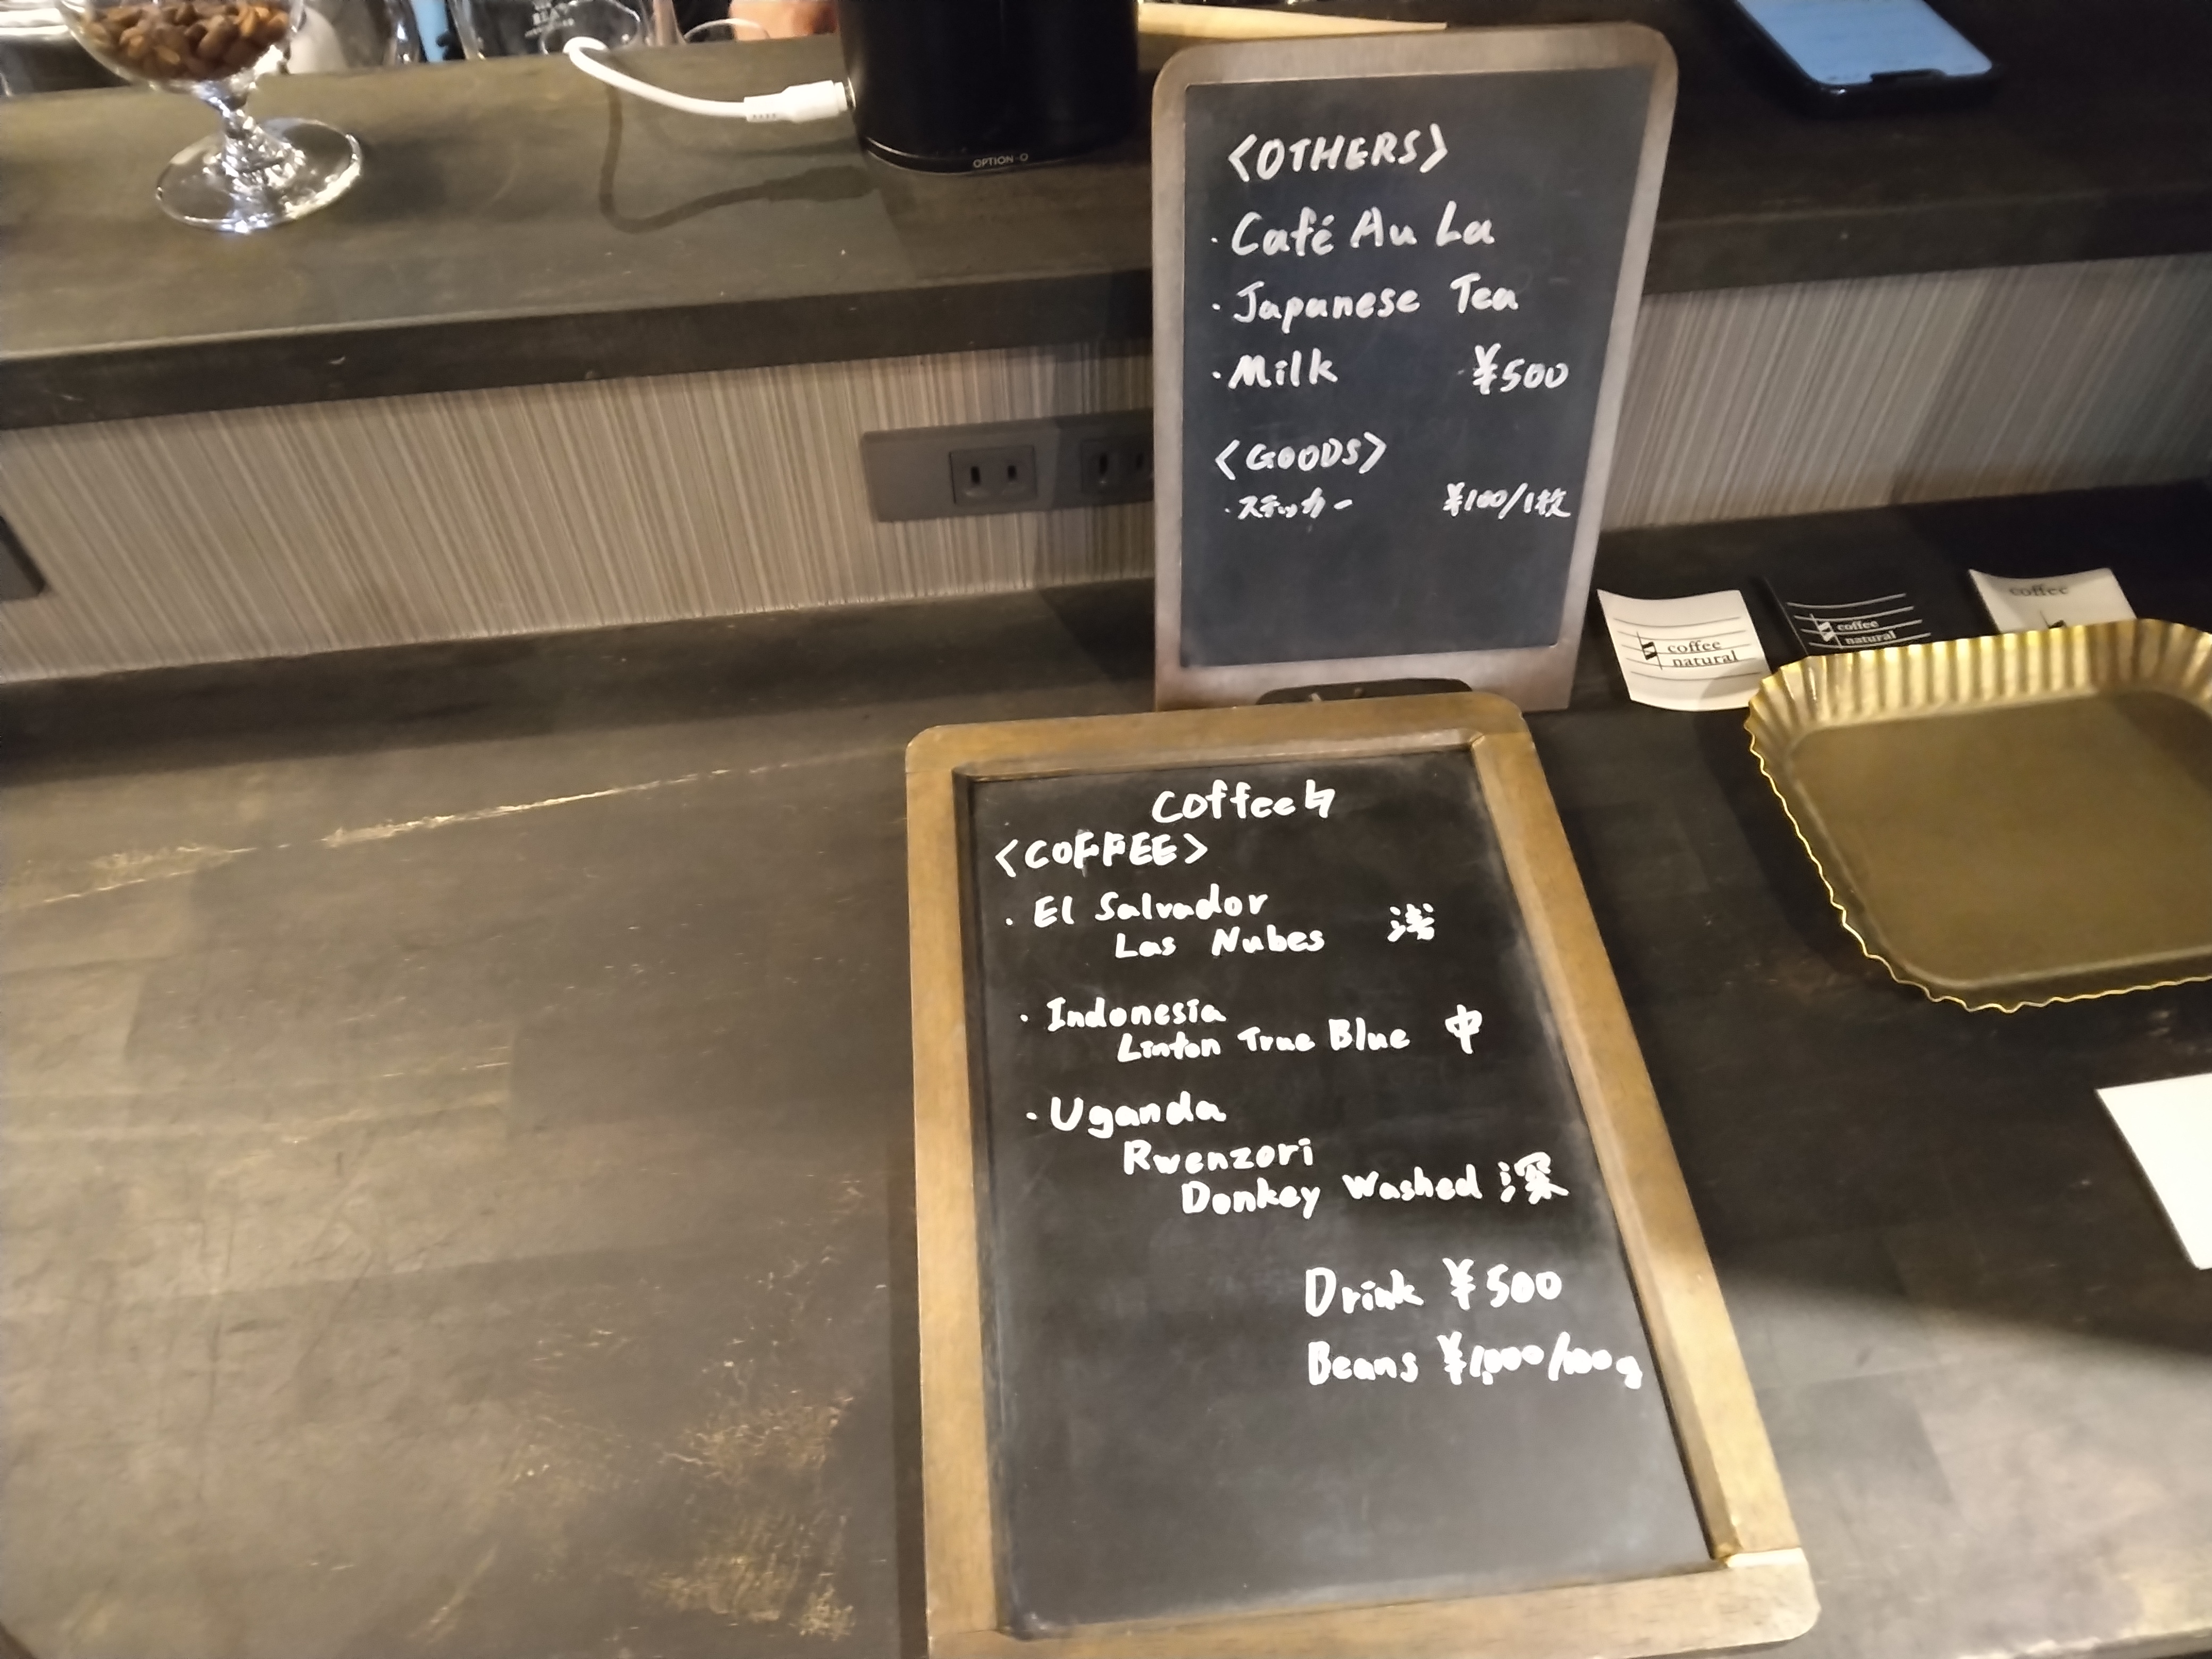 OPTION-O
<OTHERS>
・Café Au La
・Japanese Tea
・Milk ¥500
<GOODS>
・ステッカー ¥100/1枚
coffee
natural
coffee
natural
coffee
Coffee
<COFFEE>
・El Salvador
Las Nubes 浅
・Indonesia
Linton True Blue 中
・Uganda
Rwenzori
Donkey Washed 深
Drink ¥500
Beans ¥1,000/100g